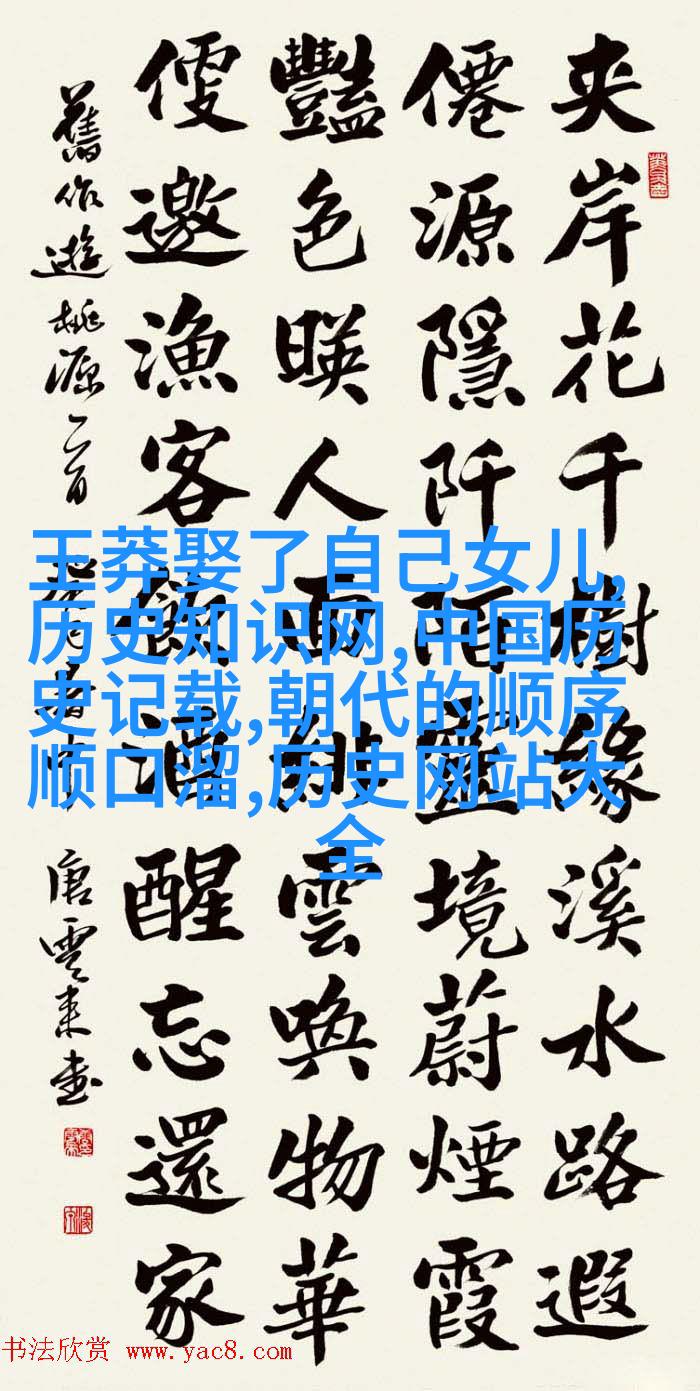 夾岸花千樹緣溪水路遐
僊源隱阡陌靈境蔚煙霞
豔色暎人面雲喚物華
便邀漁客酒醒忘還家
舊作遊桃源二首 唐雲來書
王莽娶了自己女儿,
历史知识网,中国历
史记载,朝代的顺序
顺口溜,历史网站大
全
书法欣赏 www.yac8.com